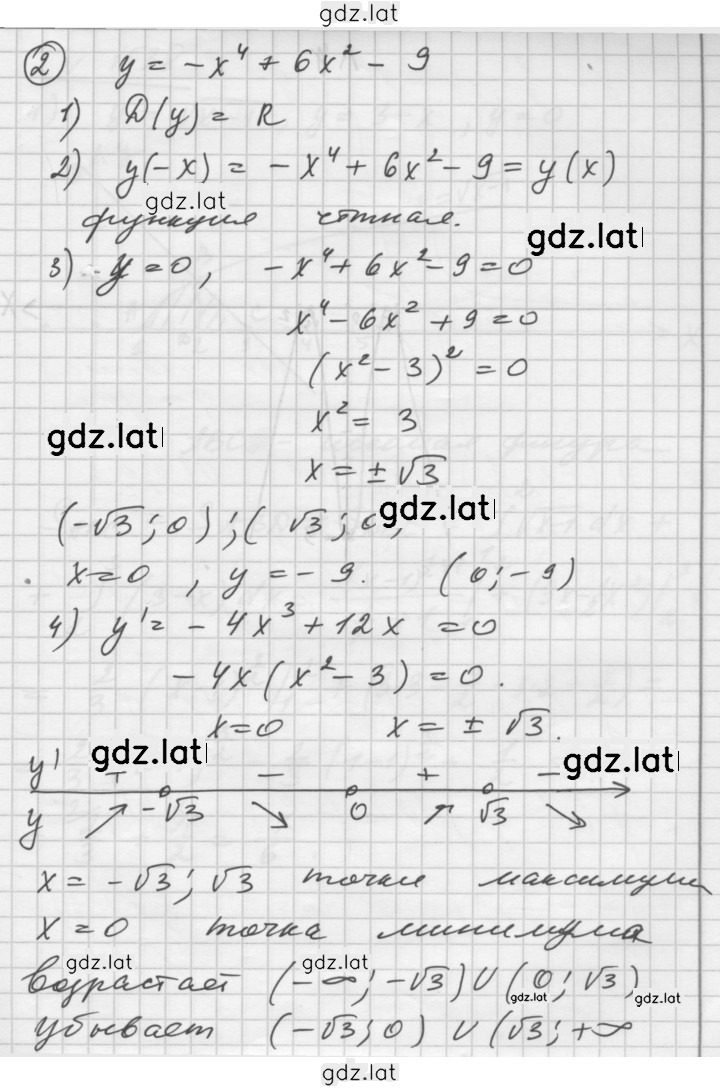 gdz.lat
2 y = -x⁴ + 6x² - 9
1) D(y) = R
2) y(-x) = -x⁴ + 6x² - 9 = y(x)
gdz.lat
функция чётная.
gdz.lat
3) y = 0, -x⁴ + 6x² - 9 = 0
x⁴ - 6x² + 9 = 0
(x² - 3)² = 0
x² = 3
gdz.lat
x = ± √3
gdz.lat
(-√3; 0); (√3; 0
x = 0, y = -9. (0; -9)
4) y' = -4x³ + 12x = 0
-4x(x² - 3) = 0.
x = 0 x = ± √3.
gdz.lat gdz.lat
y' + - + -
-√3 0 √3
y ↗ ↘ ↗ ↘
x = -√3; √3 точки максимума
x = 0 точка минимума
gdz.lat gdz.lat
возрастает (-∞; -√3) ∪ (0; √3)
gdz.lat gdz.lat
убывает (-√3; 0) ∪ (√3; +∞
gdz.lat